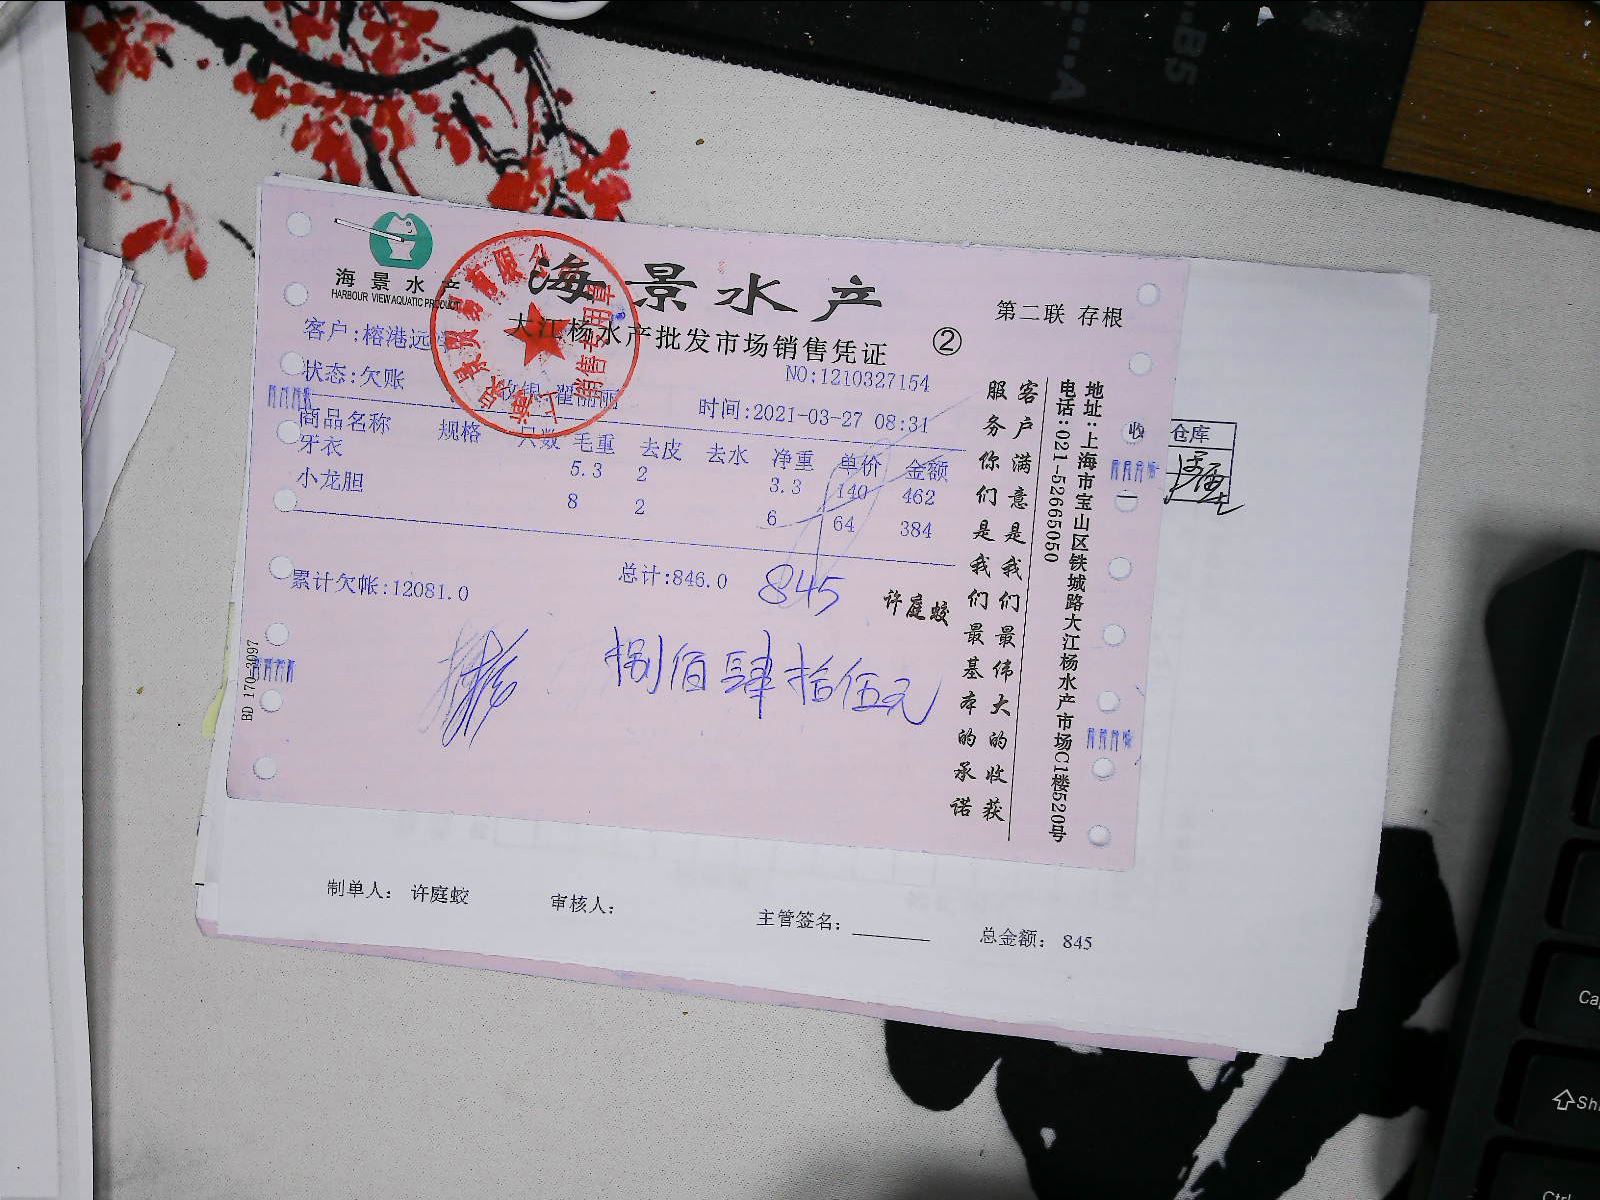 海景水产
HARBOUR VIEW AQUATIC PRODUCT
海景水产
大江杨水产批发市场销售凭证
②
第二联 存根
客户:榕港远
NO:1210327154
状态:欠账 收银:翟丽丽 时间:2021-03-27 08:31
商品名称 规格 只数 毛重 去皮 去水 净重 单价 金额
牙衣 5.3 2 3.3 140 462
小龙胆 8 2 6 64 384
累计欠帐:12081.0 总计:846.0 845
许庭蛟
捌佰肆拾伍元
客户满意是我们最伟大的收获
服务你们是我们最基本的承诺
地址:上海市宝山区铁城路大江杨水产市场C1楼520号
电话:021-52665050
BD 170-3097
销售专用章
收 仓库
制单人: 许庭蛟 审核人: 主管签名: 总金额: 845
B5
A
Ca
Shi
Ctrl